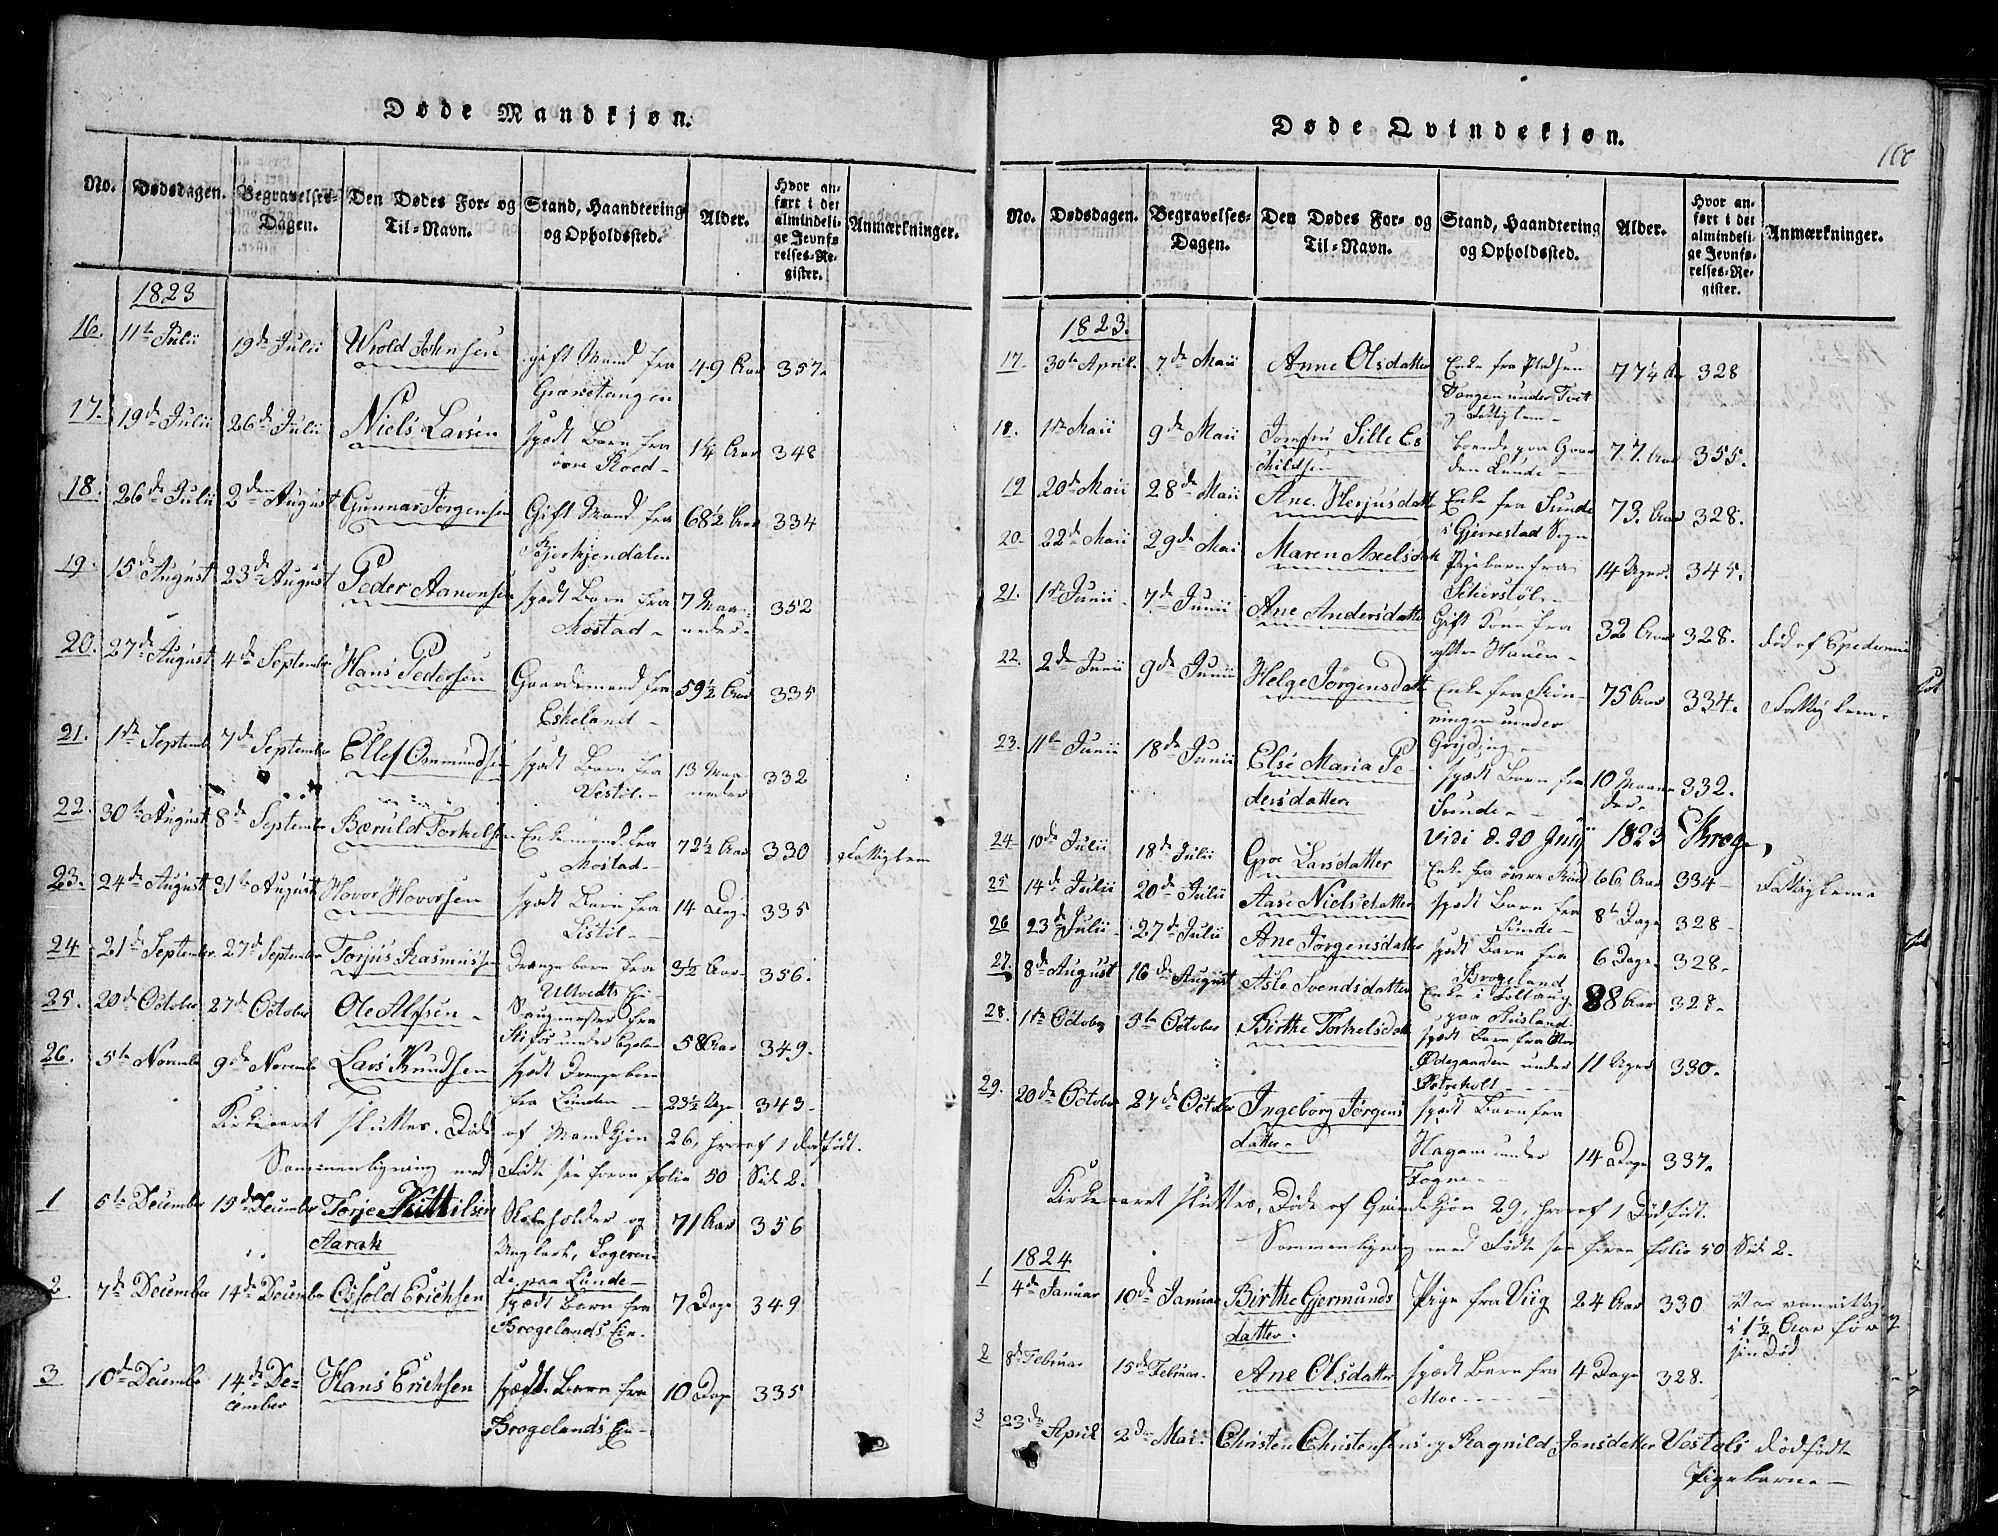 Døde Mandkjøn.
No. Dødsdagen. Begravelses-Dagen. Den Dødes For- og Til-Navn. Stand, Haandtering og Opholdssted. Alder. Hvor anført i det almindelige Jevnførelses-Register. Anmærkninger.
1823
16. 11te Julii 19de Julii Wrold Johnsen gift Mand fra 49 Aar 357.
Grænstangen
17. 19de Julii 26de Julii Niels Larsen spædt Barn fra 1¼ Aar 348
øvre Roed
18. 26de Julii 2den August Gunnar Jørgensen Gift Mand fra 68½ Aar 334
Bjorkjendalen
19. 15de August 23de August Peder Aanonsen spædt Barn fra 7 Maaneder 352
Mostad
20. 27de August 4de September Hans Pedersen Gaardmand fra 59½ Aar 335
Eskeland
21. 1ste September 7de September Ellef Ommundsen spædt Barn fra 13 Maaneder 332
Vestøl
22. 30te August 8de September Bæruld Torkelsen Enkemand fra 72½ Aar 330 Fattiglem
Mostad
23. 24de August 31te August Hovor Hovorsen spædt Barn fra 14 Dage 335
Listøl
24 21de September 27de September Torjus Rasmusen Drengebarn fra 3½ Aar 356.
Ultvedts Ei
25. 20de October 27de October Ole Alfsen Saugmester fra 58 Aar 349.
26. 5te Novembr 9de Novembr Lars Knudsen spædt Drengebarn
fra Lunden 23½ Uge 343
Kirkeaaret sluttes. Døde af Mandkjøn 26, hvoraf 1 dødfødt.
Sammenligning med Fødte see foran folio 50 Side 2.
1 5te December 15de December Torje Kittilsen 71 Aar 356
Aarak
paa Lunde
2 7de December 14de December Osfold Erichsen spædt Barn fra 7 Dage 349
Brogelands Eie
3 10de December 14de December Hans Erichsen spædt Barn fra 10 Dage 335
Brogelands Eie
Døde Qvindekjøn.
No. Dødsdagen. Begravelses-Dagen. Den Dødes For- og Til-Navn. Stand, Haandtering og Opholdssted. Alder. Hvor anført i det almindelige Jevnførelses-Register. Anmærkninger.
1823.
17. 30te April 7de Maii Anne Olsdatter Enke fra Pladsen 77¼ Aar 328
Tangen under Tvet
og Fattiglem
18. 1ste Maii 9de Maii Jomfru Sille Es
childsen boende paa Gaarden Lunde 77. Aar 355.
19 20de Maii 28de Maii Ane Herjusdatter Enke fra Sunde 73. Aar 328.
i Gjerrestad Sogn
20. 22de Maii 29de Mai Maren Axelsdatter Pigebarn fra 14 Uger 345.
21. 1ste Junii 7de Junii Ane Andersdatter Gift Kone fra 32 Aar 328. død af Epedemie
ytter Hauen
22. 2de Junii 9de Junii Helge Jørgensdatter Enke fra 75 Aar 334. Fattiglem.
under
23. 11te Junii 18de Junii Else Maria Pedersdatter spædt Barn fra 10 Maaneder 332.
Sunde
Vidi d. 20 July 1823 Krog,
24 10de Julii 18de Julii Groe Larsdatter Enke fra øvre Roed 66 Aar 334 Fattiglem
25 14de Julii 20de Julii Aase Nielsdatter spædt Barn fra 8te Dage 328
Sunde
26 23de Julii 27de Julii Ane Jørgensdatter spædt Barn fra 6 Dage 328.
Brogeland
27. 8de August 16de August Asle Svendsdatter Enke 88 Aar 328.
paa Ausland
28. 1ste October 5te October Birthe Torkelsdatter spædt Barn fra
Ødegaarden under 11 Uger 330.
Østreholt
29. 20de October 27de October Ingeborg Jørgens spædt Barn fra
datter Hagam under 14 Dage 337.
Fogne
Kirkeaaret sluttes, Døde af Qvindekjøn 29, hvoraf 1 Dødfødt.
Sammenligning med Fødte see foran folio 50 Side 2.
1824
1 4de Januar 10de Januar Birthe Gjermunds Pige fra Viig 24 Aar 330 Var vanvittig
datter. i 1½ Aar før
sin Død
2 8de Februar 15de Februar Ane Olsdatter spædt Barn fra 4 Dage 328.
Moe
3 23de April 2de Mai Christen Christensens og Ragnild Jonsdatter Vestøls dødfødte
Pigebarn